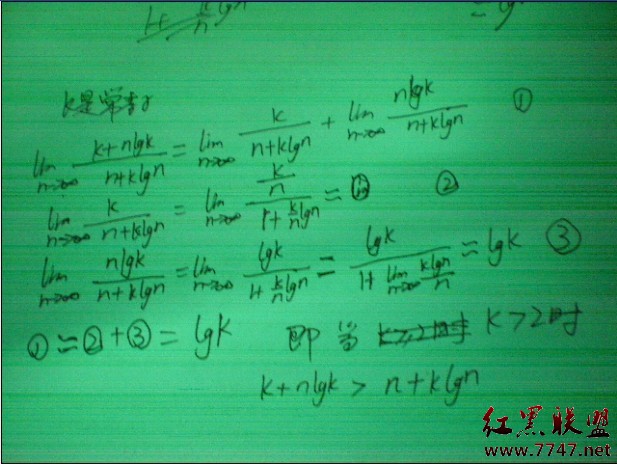 k是常数
lim n→∞ (k+nlgk)/(n+klgn) = lim n→∞ k/(n+klgn) + lim n→∞ nlgk/(n+klgn) ①
lim n→∞ k/(n+klgn) = lim n→∞ (k/n)/(1+(k/n)lgn) = ②
lim n→∞ nlgk/(n+klgn) = lim n→∞ lgk/(1+(k/n)lgn) = lgk/(1+lim n→∞ klgn/n) = lgk ③
① = ②+③ = lgk 即当 k>2时
k+nlgk > n+klgn
红黑联盟
www.7747.net